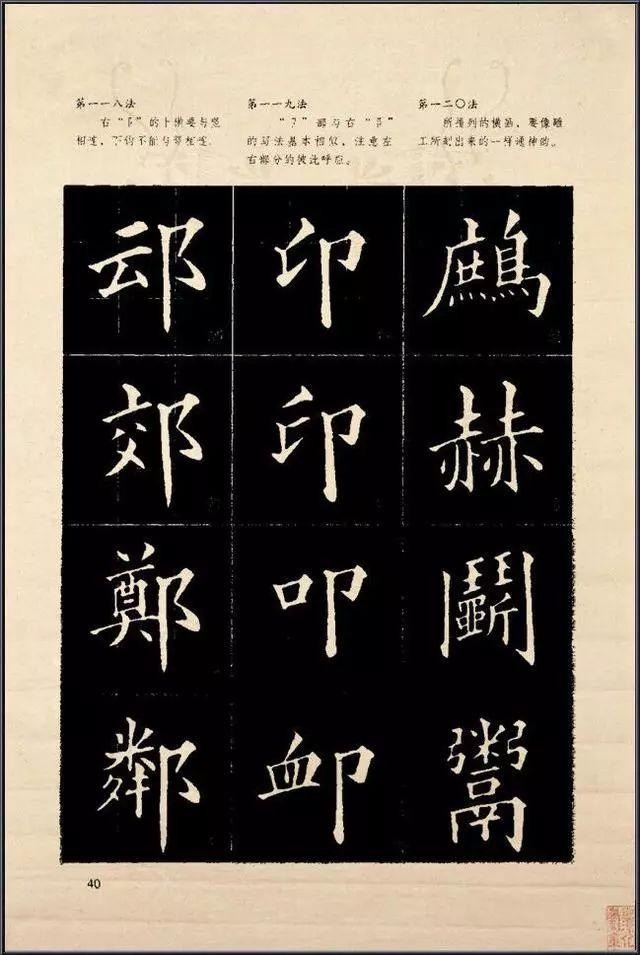 第一一八法
右“阝”的上撇要与竖
相连,下钩不能与竖相连。
第一一九法
“卩”部与右“阝”
的写法基本相似,注意左
右部分的彼此呼应。
第一二〇法
所排列的横画,要像雕
工所刻出来的一样通神的。
䢵 印 鷓
郊 印 赫
鄭 叩 鬬
鄰 卹 鬻
40